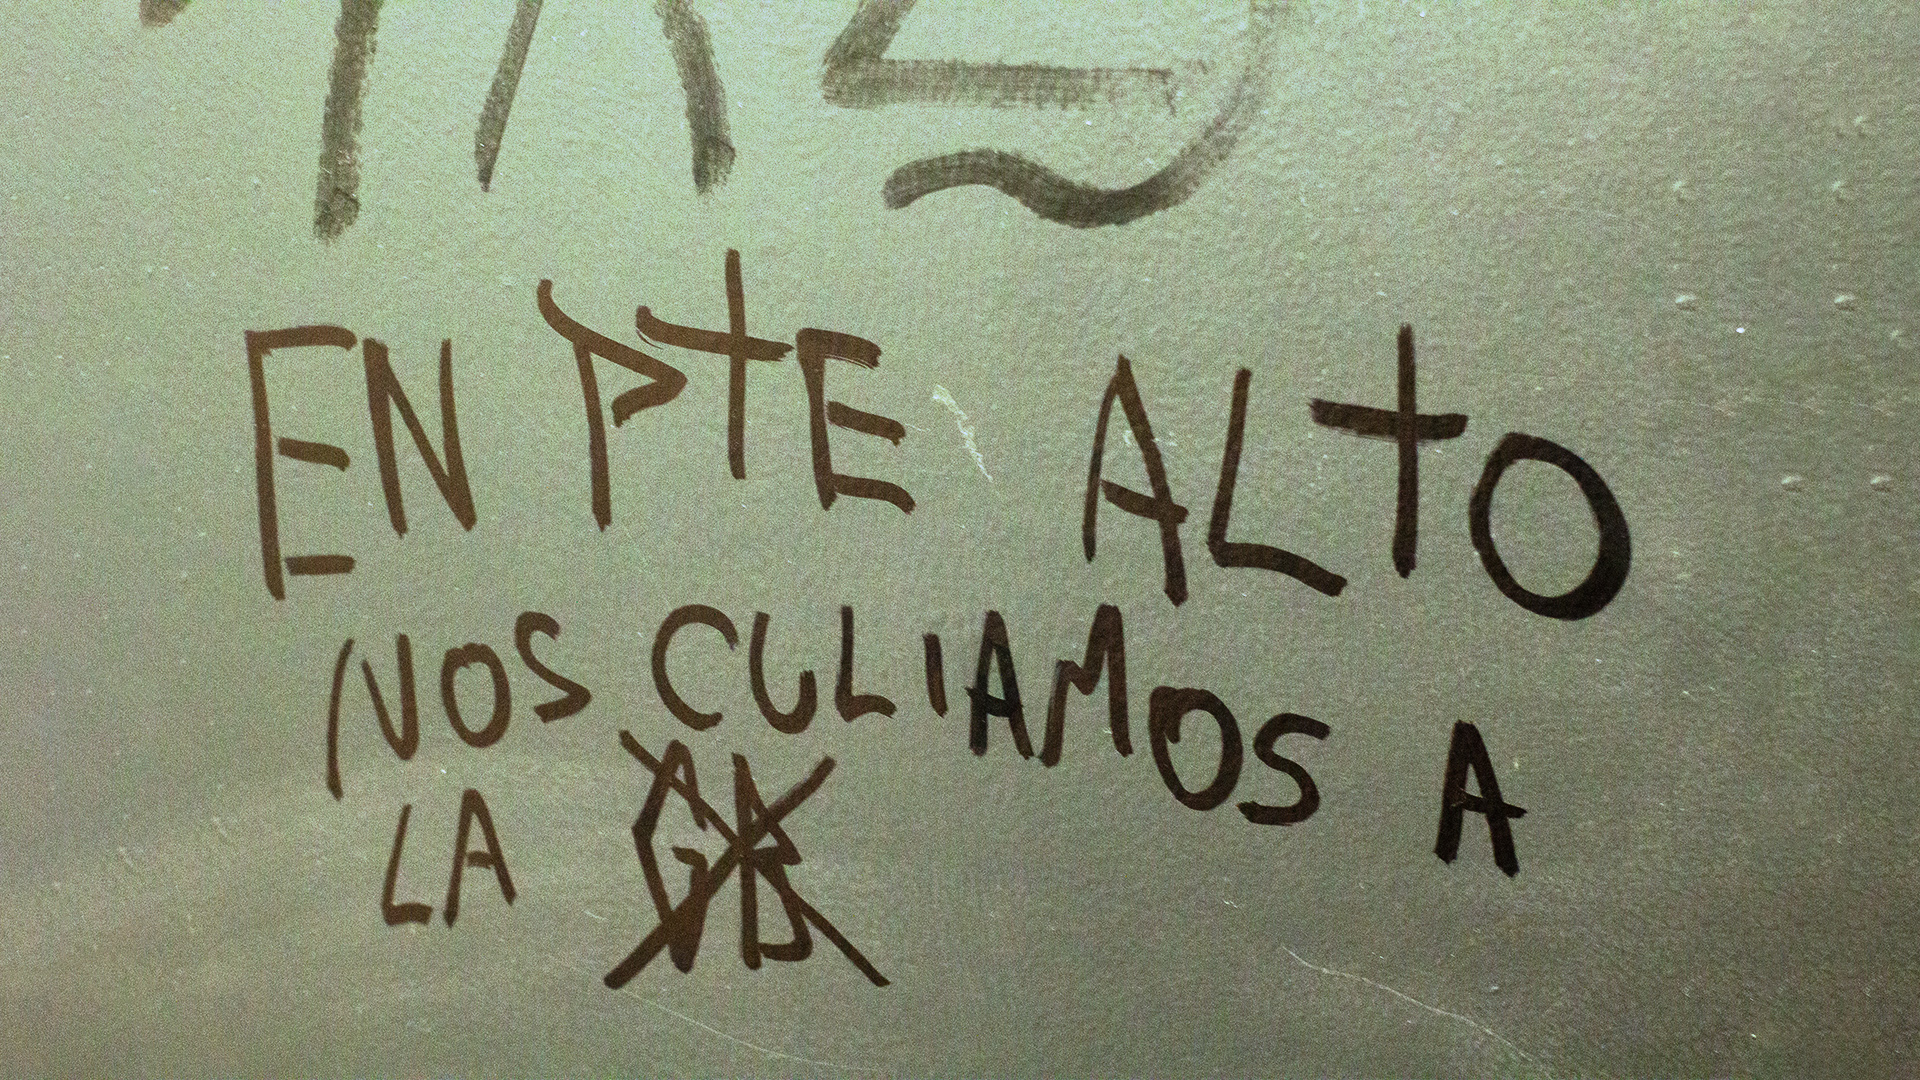 EN PtE ALtO
NOS CULIAMOS A
LA GB